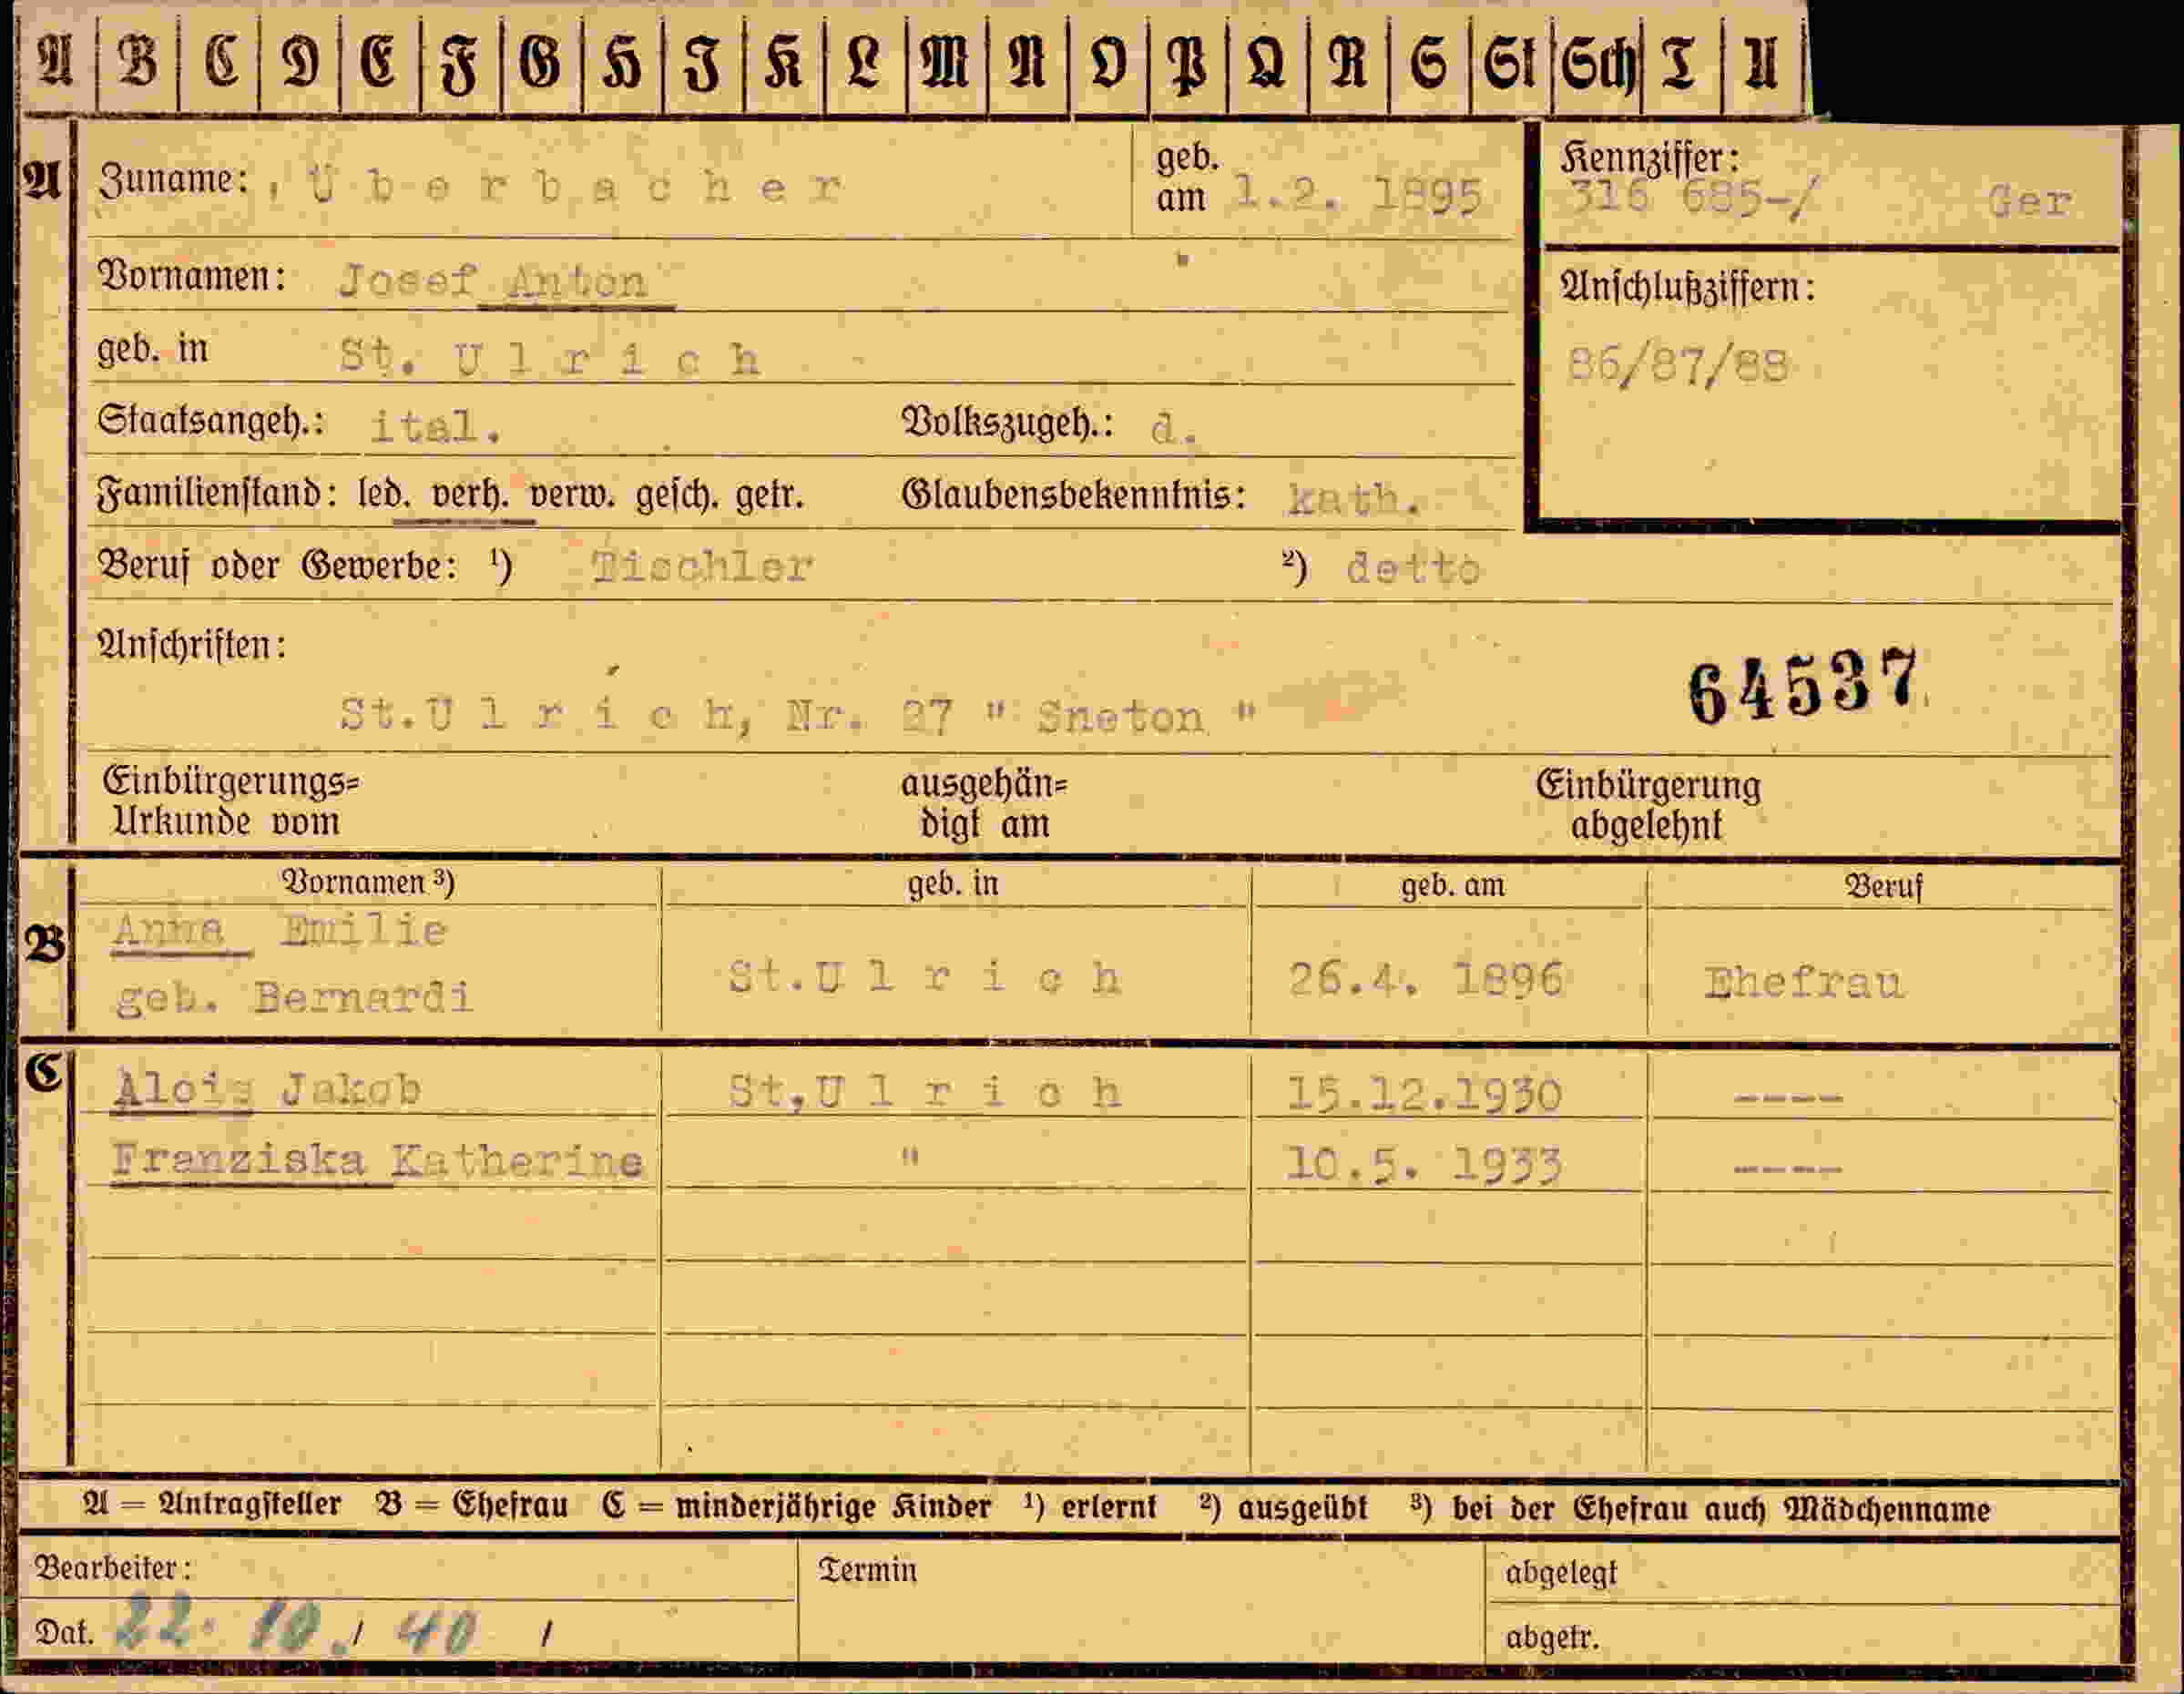 A B C D E F G H I K L M N O P Q R S St Sch T U
A Zuname: Überbacher geb. am 1.2. 1895 Kennziffer: 316 685-/ Ger
Vornamen: Josef Anton Anschlußziffern:
geb. in St. Ulrich 86/87/88
Staatsangeh.: ital. Volkszugeh.: d.
Familienstand: led. verh. verw. gesch. getr. Glaubensbekenntnis: kath.
Beruf oder Gewerbe: ¹) Tischler ²) detto
Anschriften:
64537
St.Ulrich, Nr. 27 " Sneton "
Einbürgerungs= ausgehän= Einbürgerung
Urkunde vom digt am abgelehnt
Vornamen ³) geb. in geb. am Beruf
B Anna Emilie
geb. Bernardi St.Ulrich 26.4. 1896 Ehefrau
C Alois Jakob St,Ulrich 15.12.1930 ----
Franziska Katherine " 10.5. 1933 ----
A = Antragsteller B = Ehefrau C = minderjährige Kinder ¹) erlernt ²) ausgeübt ³) bei der Ehefrau auch Mädchenname
Bearbeiter: Termin abgelegt
Dat. 22. 10./ 40 / abgetr.